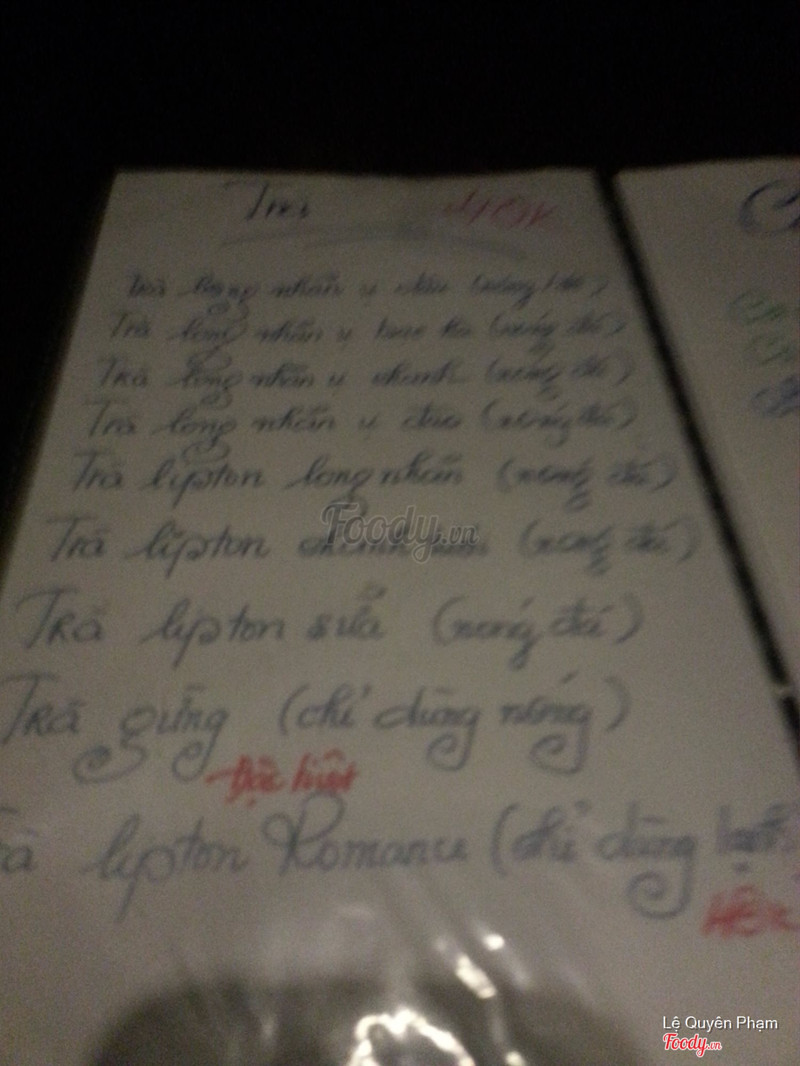 Trà
Trà long nhãn vị dâu (nóng/đá)
Trà long nhãn vị (nóng đá)
Trà long nhãn vị chanh (nóng đá)
Trà long nhãn vị đào (nóng đá)
Trà lipton long nhãn (nóng đá)
Trà lipton (nóng đá)
Foody.vn
Trà lipton sữa (nóng đá)
Trà gừng (chỉ dùng nóng)
Đặc biệt
lipton Romanu (chỉ dùng lạnh)
Lệ Quyên Phạm
Foody.vn